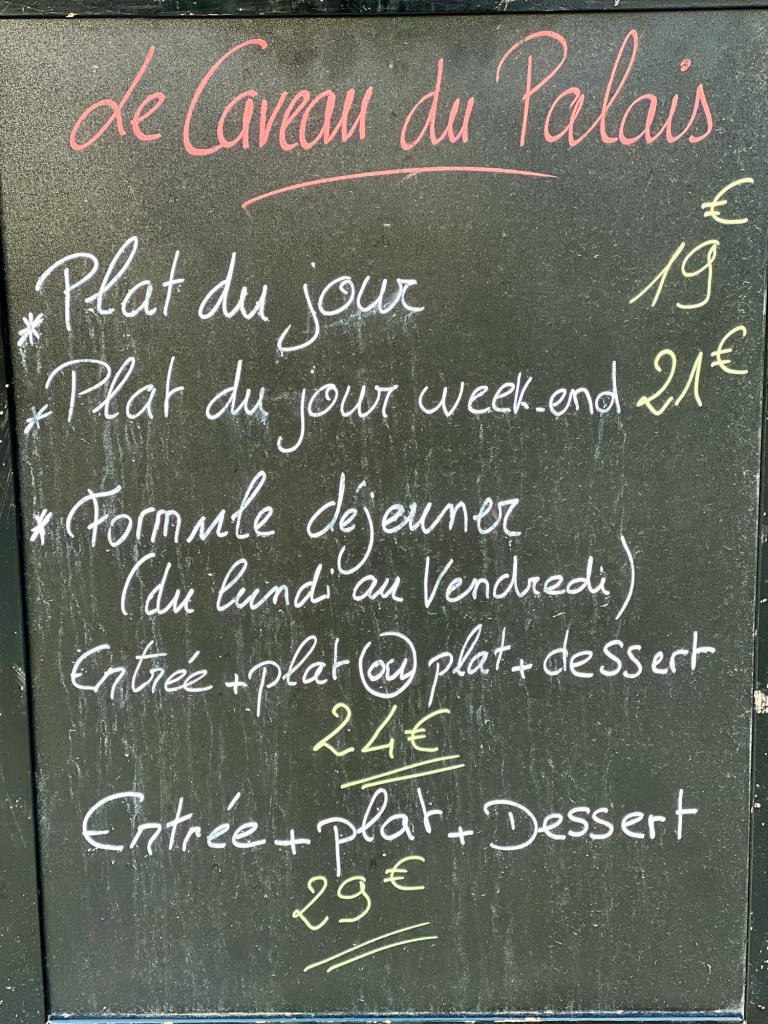 Le Caveau du Palais
* Plat du jour 19 €
* Plat du jour week-end 21€
* Formule déjeuner
(du lundi au Vendredi)
Entrée + plat ou plat + dessert
24€
Entrée + plat + Dessert
29€